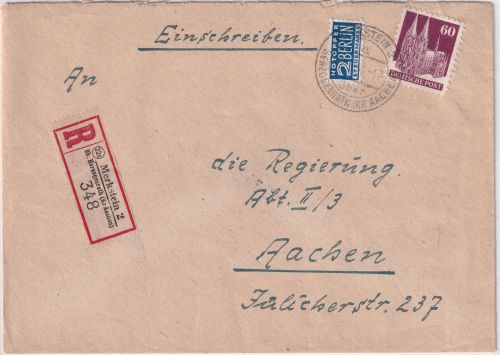 Einschreiben.
NOTOPFER
2 BERLIN
STEUERMARKE
60
DEUTSCHE POST
An
R
(22c) Merkstein 2
üb. Herzogenrath (Kr Aachen)
348
die Regierung
Abt. II/3
Aachen
Jülicherstr. 237